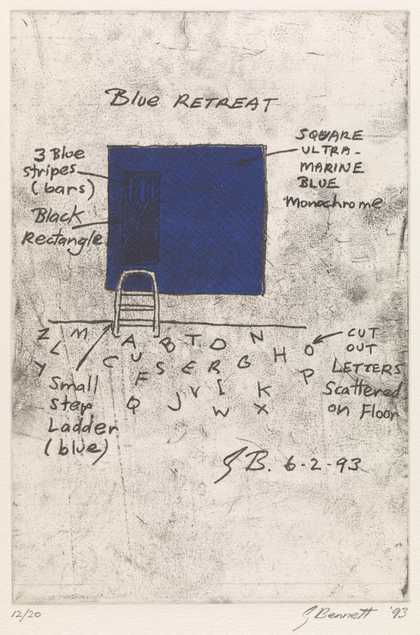 Blue RETREAT
3 Blue
stripes
(bars)
Black
Rectangle
SQUARE
ULTRA-
MARINE
BLUE
Monochrome
Z M A B T D N
L U H O
Y C F S E R G P
Q J V I K
W X
CUT
OUT
LETTERS
Scattered
on Floor
Small
step
Ladder
(blue)
G B. 6-2-93
12/20
G Bennett '93